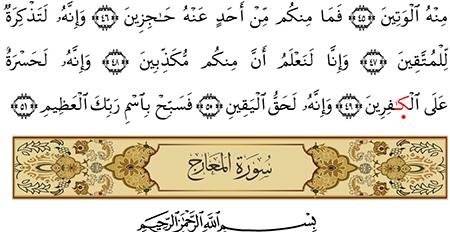 مِنْهُ ٱلْوَتِينَ ﴿٤٥﴾ فَمَا مِنكُم مِّنْ أَحَدٍ عَنْهُ حَـٰجِزِينَ ﴿٤٦﴾ وَإِنَّهُۥ لَتَذْكِرَةٌ
لِّلْمُتَّقِينَ ﴿٤٧﴾ وَإِنَّا لَنَعْلَمُ أَنَّ مِنكُم مُّكَذِّبِينَ ﴿٤٨﴾ وَإِنَّهُۥ لَحَسْرَةٌ
عَلَى ٱلْكَـٰفِرِينَ ﴿٤٩﴾ وَإِنَّهُۥ لَحَقُّ ٱلْيَقِينِ ﴿٥٠﴾ فَسَبِّحْ بِٱسْمِ رَبِّكَ ٱلْعَظِيمِ ﴿٥١﴾
سُورَةُ المَعَارِج
بِسْمِ ٱللَّهِ ٱلرَّحْمَـٰنِ ٱلرَّحِيمِ